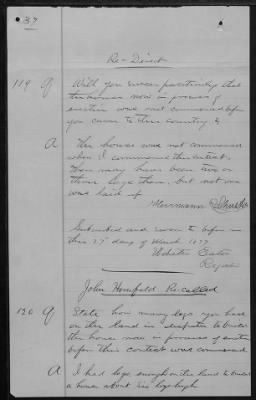 37
Re-Direct
119 Q Will you swear positively that
the house now in process of
erection was not commenced before
you came to this country?
A The house was not commenced
when I commenced this contest.
There may have been two or
three logs there, but not one
was laid up
Hermann
Subscribed and sworn to before me
this 27th day of March 1877
Webster Eaton
Register
John Hornfeld Re-called
120 Q State how many logs you have
on this land in dispute to build
the house now in process of erection
before this contest was commenced
A I had logs enough on the land to build
a house about six logs high